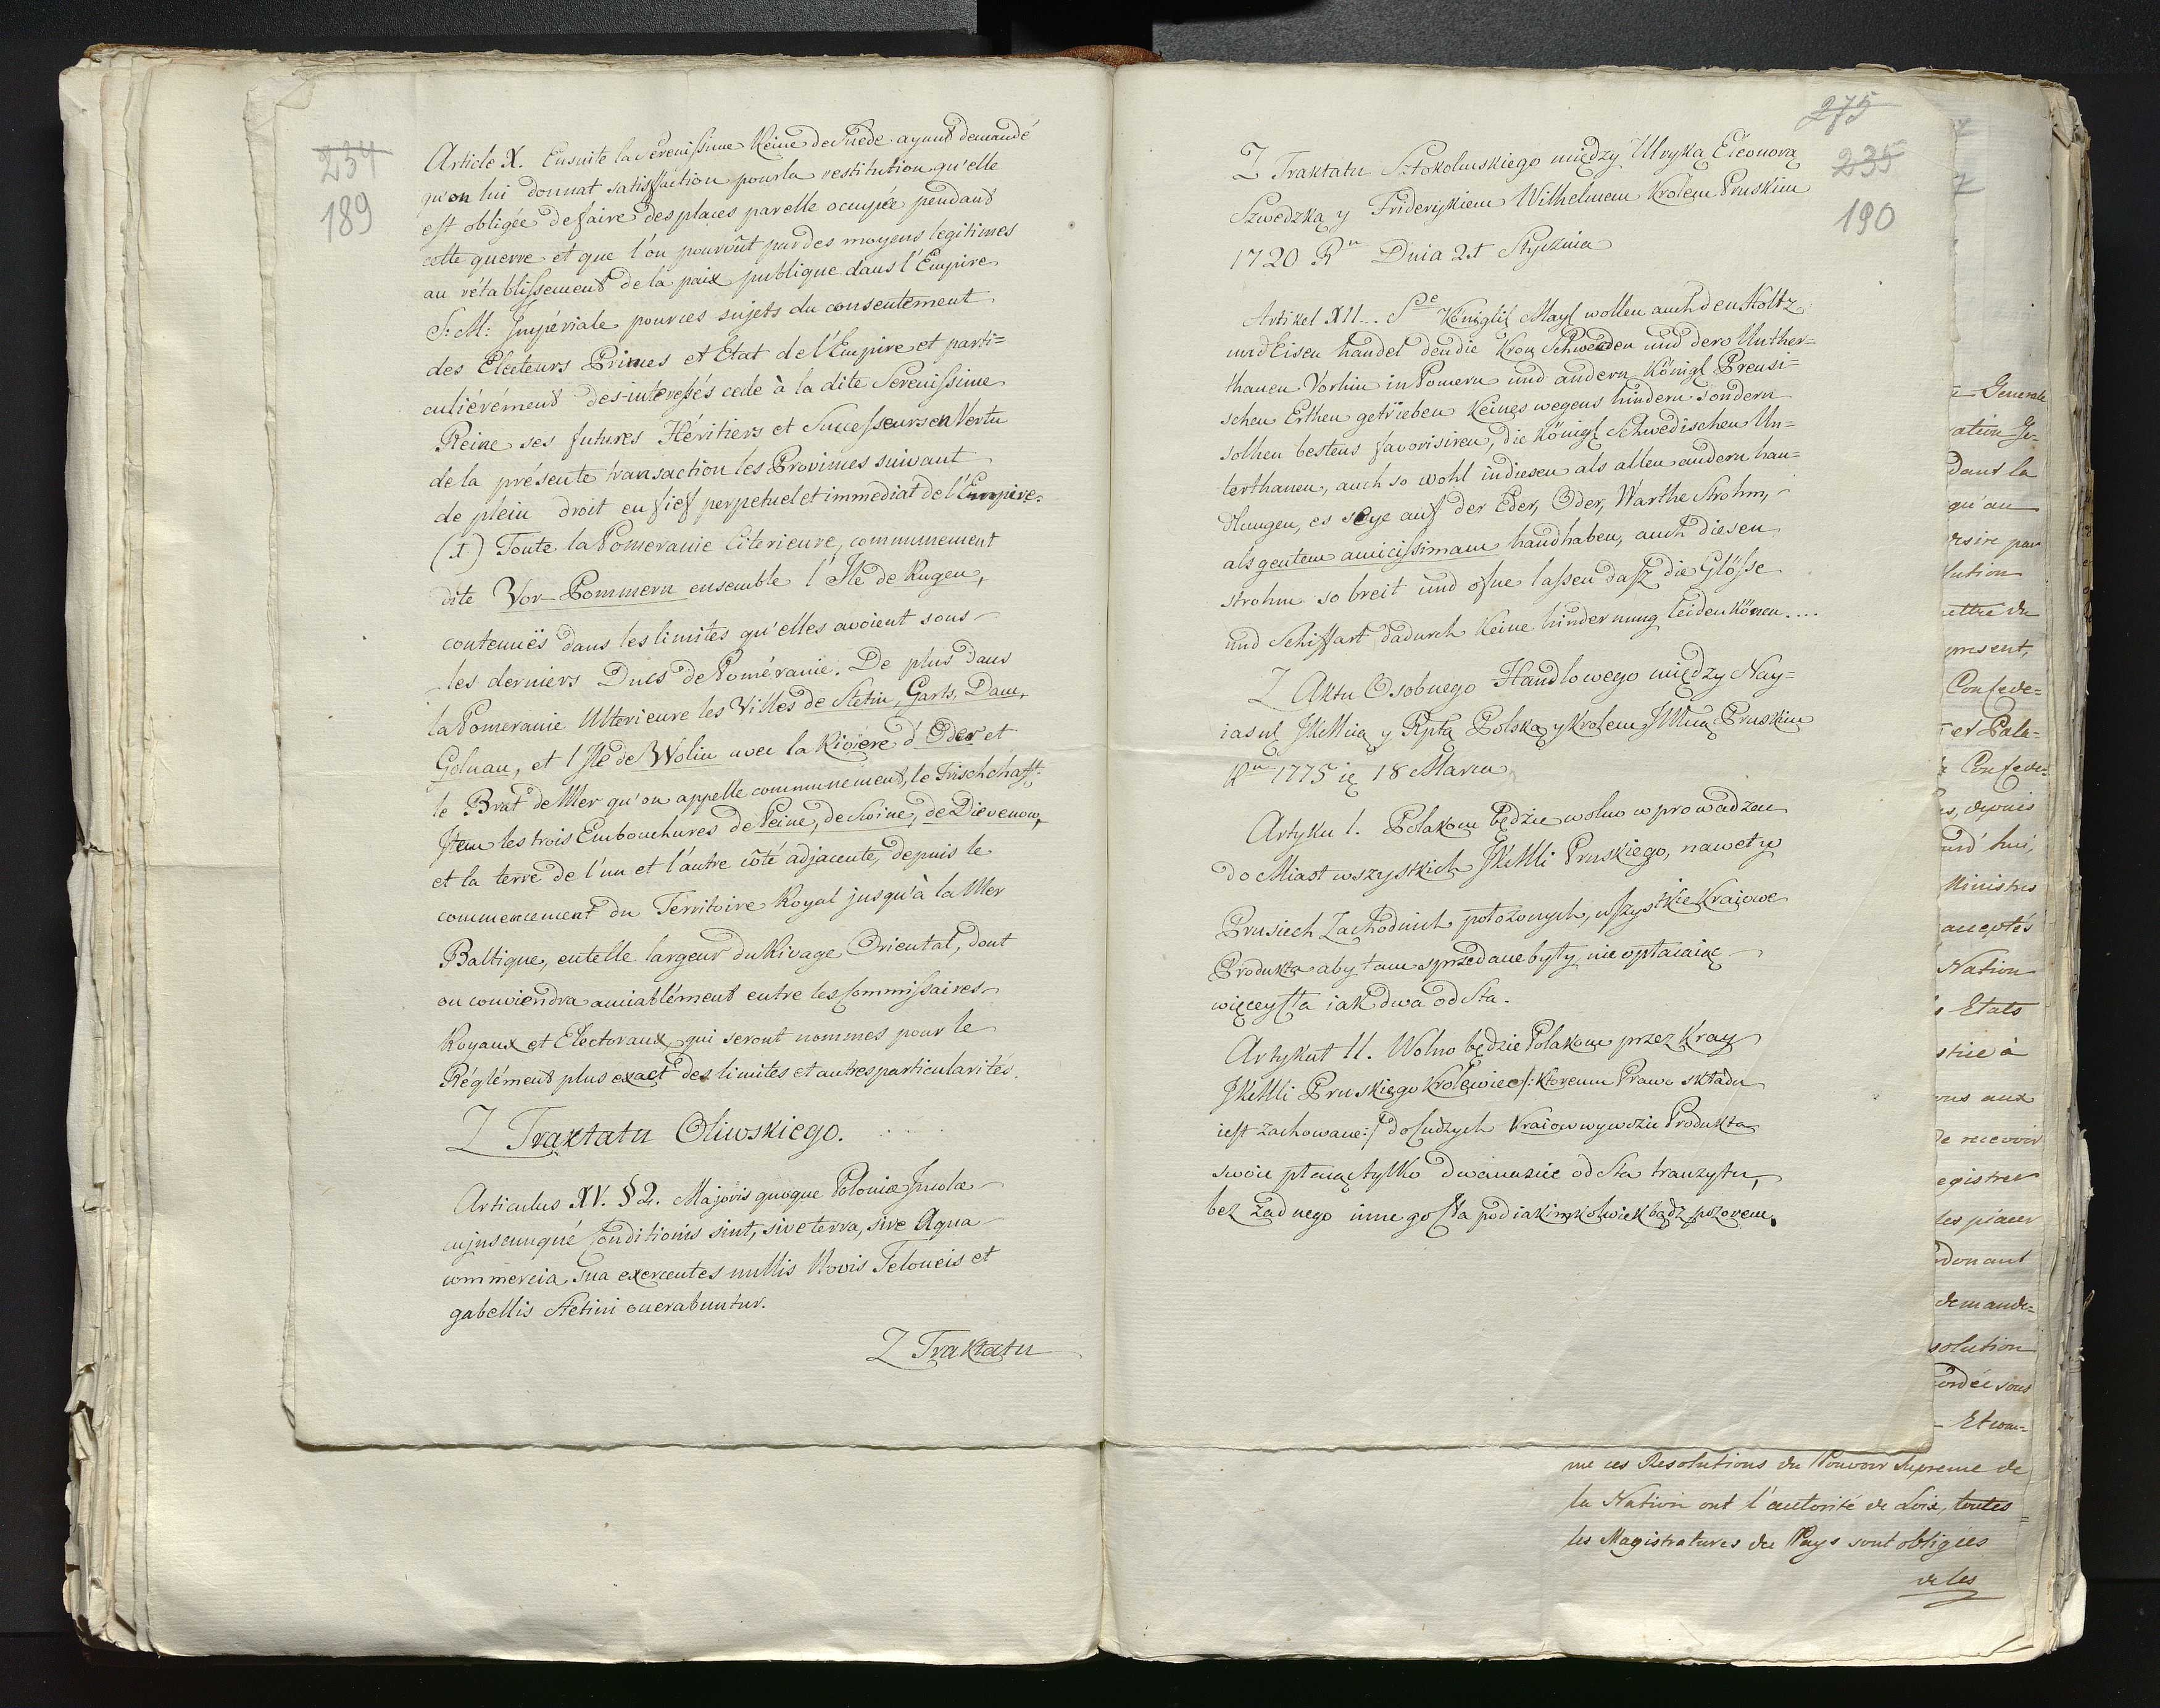 234
189
Article X. Ensuite la Serenissime Reine de Suede ayant demandé
qu'on lui donnat satisfaction pour la restitution qu'elle
est obligée de faire des places par elle occupée pendant
cette guerre et que l'on pourvût par des moyens legitimes
au rétablissement de la paix publique dans l'Empire
S: M: Impériale pour ces sujets du consentement
des Electeurs Princes et Etat de l'Empire et parti=
culiérément des-interessés cede à la dite Serenissime
Reine ses futures Héritiers et Successeurs en Vertu
de la présente transaction les Provinces suivant
de plein droit en fief perpetuel et immediat de l'Empire.
(1) Toute la Pomeranie Citerieure, communement
dite Vor-Pommern ensemble l'Ile de Rugen,
contenuës dans les limites qu'elles avoient sous
les derniers Ducs de Poméranie. De plus dans
la Pomeranie Ulterieure les Villes de Stetin, Garts, Dam,
Golnau, et l'Ile de Wolin avec la Riviere d'Oder et
le Brat de Mer qu'on appelle communement, le Frischhaff.
Item les trois Embouchures de Peine, de Swine, de Dievenow,
et la terre de l'un et l'autre côté adjacente, depuis le
commencement du Territoire Royal jusqu'à la Mer
Baltique, en telle largeur du Rivage Oriental, dont
on conviendra amiablément entre les Commissaires
Royaux et Electoraux, qui seront nommes pour le
Réglément plus exact des limites et autres particularités.
Z Traktatu Oliwskiego.
Articulus XV. §2. Majoris quoque Poloniæ Incolæ
cujuscunqué Conditionis sint, sive terra, sive Aqua
commercia sua exercentes nullis Novis Teloneis et
gabellis Stetini onerabuntur.
Z Traktatu
275
235
190
Z Traktatu Sztokolmskiego między Ulryką Eleonorą
Szwedzką y Friderykiem Wilhelmem Krolem Pruskim
1720 Rn Dnia 21 Stycznia
Artikel XII... Se Königli Mayt wollen auch den Holtz
und Eisen handel den die Kron Schweden und dero Unther=
thanen Vorhin in Pomern und andern Königl Preusi=
schen Erthen getrieben Keines wegens hindern sondern
solhen bestens favorisiren, die Königl Schwedischen Un=
terthanen, auch so wohl in diesen als allen andern han=
dlungen, es seye auf der Eder, Oder, Warthe Strohm,
als gentem amicissimam handhaben, auch diesen
strohm so breit und ofne lassen dasz die Glösse
und Schiffart dadurch Keine hindernung leiden Könen....
Z Aktu Osobnego Handlowego między Nay=
iasnł JKMcią y Rptą Polską y Krolem JMcią Pruskim
Rn 1775 ię 18 Marca
Artyku I. Polakom będzie wolno wprowadzau
do Miast wszystkich JKMci Pruskiego, nawet w
Prusiech Zachodnich położonych, wszystkie Kraiowe
Produkta aby tam sprzedane były nie opłacaiąc
więcey cła iak dwa od Sta.
Artykuł II. Wolno będzie Polakom przez Kray
JKMci Pruskiego Krolewiec /: ktoremu Prawo składu
iest zachowane :/ do Cudzych Kraiow wywozic Produkta
swoie płacąc tylko dwanascie od Sta tranzytu,
bez żadnego innego cła pod iakimkolwiek bądz pozorem.
7
7
Generale
dans la
qu'au
lution
present,
Confede=
et Pala=
Confede=
es, depuis
urd'hui,
Ministres
acceptés
Nation
Etats
recevoir
egistrer
donant
demande=
solution
cordée sous
Et com=
me ces Resolutions du Pouvoir Supreme de
la Nation ont l'autorité de Loix, toutes
les Magistratures du Pays sont obligées
de les